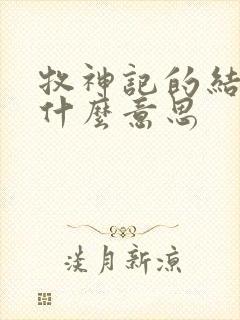 牧神記的結
什麼意思
淡月新涼